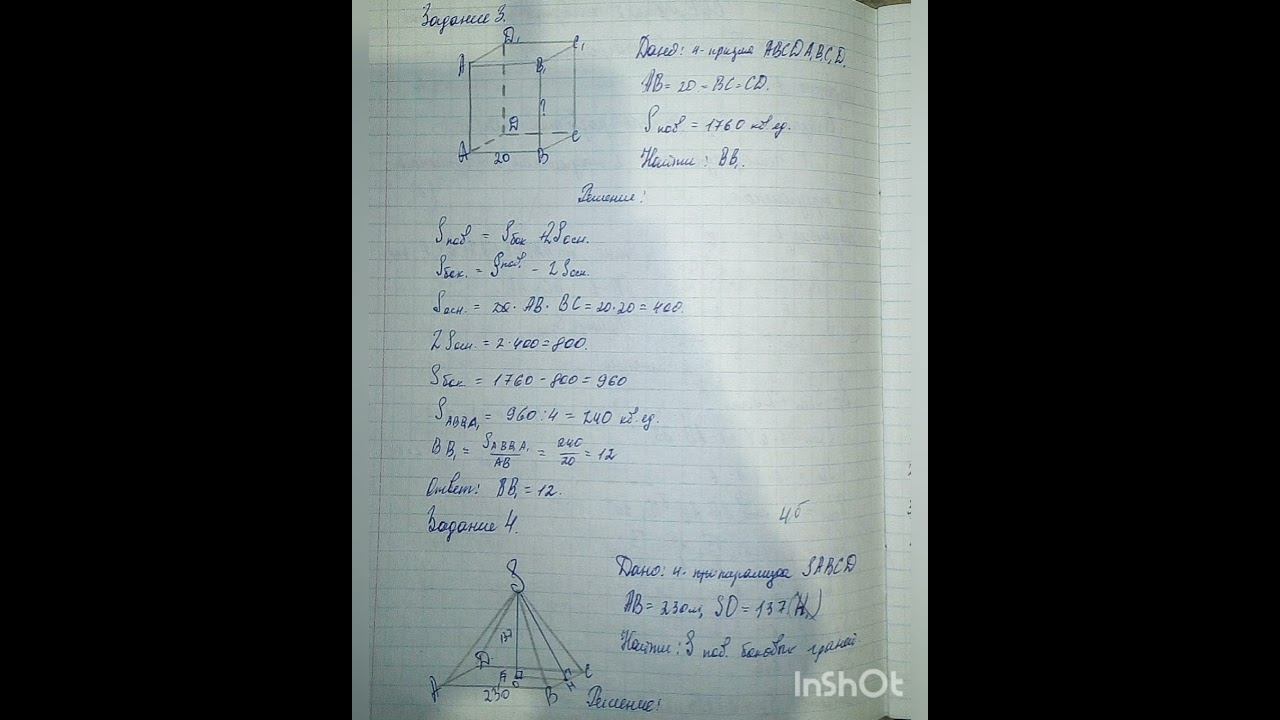 Задание 3.
D₁ C₁
A B₁
?
D C
A 20 B
Дано: 4-призма ABCDA₁B₁C₁D₁
AB = 20 = BC = CD.
Sпов = 1760 кв ед.
Найти: BB₁.
Решение:
Sпов. = Sбок + 2Sосн.
Sбок. = Sпов. - 2Sосн.
Sосн. = AB · BC = 20·20 = 400.
2Sосн. = 2·400 = 800.
Sбок = 1760 - 800 = 960
SABB₁A₁ = 960 : 4 = 240 кв ед.
BB₁ = SABB₁A₁/AB = 240/20 = 12
Ответ: BB₁ = 12.
4б
Задание 4.
S
137
D C
O H
A 230 B
Дано: 4- пирамида SABCD
AB = 230м, SO = 137 (H)
Найти: S пов. боковых граней
Решение:
InShOt